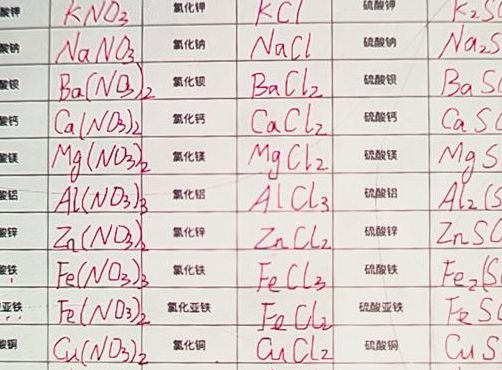 酸钾 KNO3 氯化钾 KCl 硫酸钾 K2S
酸钠 NaNO3 氯化钠 NaCl 硫酸钠 Na2S
酸钡 Ba(NO3)2 氯化钡 BaCl2 硫酸钡 BaS
酸钙 Ca(NO3)2 氯化钙 CaCl2 硫酸钙 CaS
酸镁 Mg(NO3)2 氯化镁 MgCl2 硫酸镁 MgS
酸铝 Al(NO3)3 氯化铝 AlCl3 硫酸铝 Al2(S
酸锌 Zn(NO3)2 氯化锌 ZnCl2 硫酸锌 ZnSO
酸铁 Fe(NO3)3 氯化铁 FeCl3 硫酸铁 Fe2(S
亚铁 Fe(NO3)2 氯化亚铁 FeCl2 硫酸亚铁 FeS
酸铜 Cu(NO3)2 氯化铜 CuCl2 硫酸铜 CuS